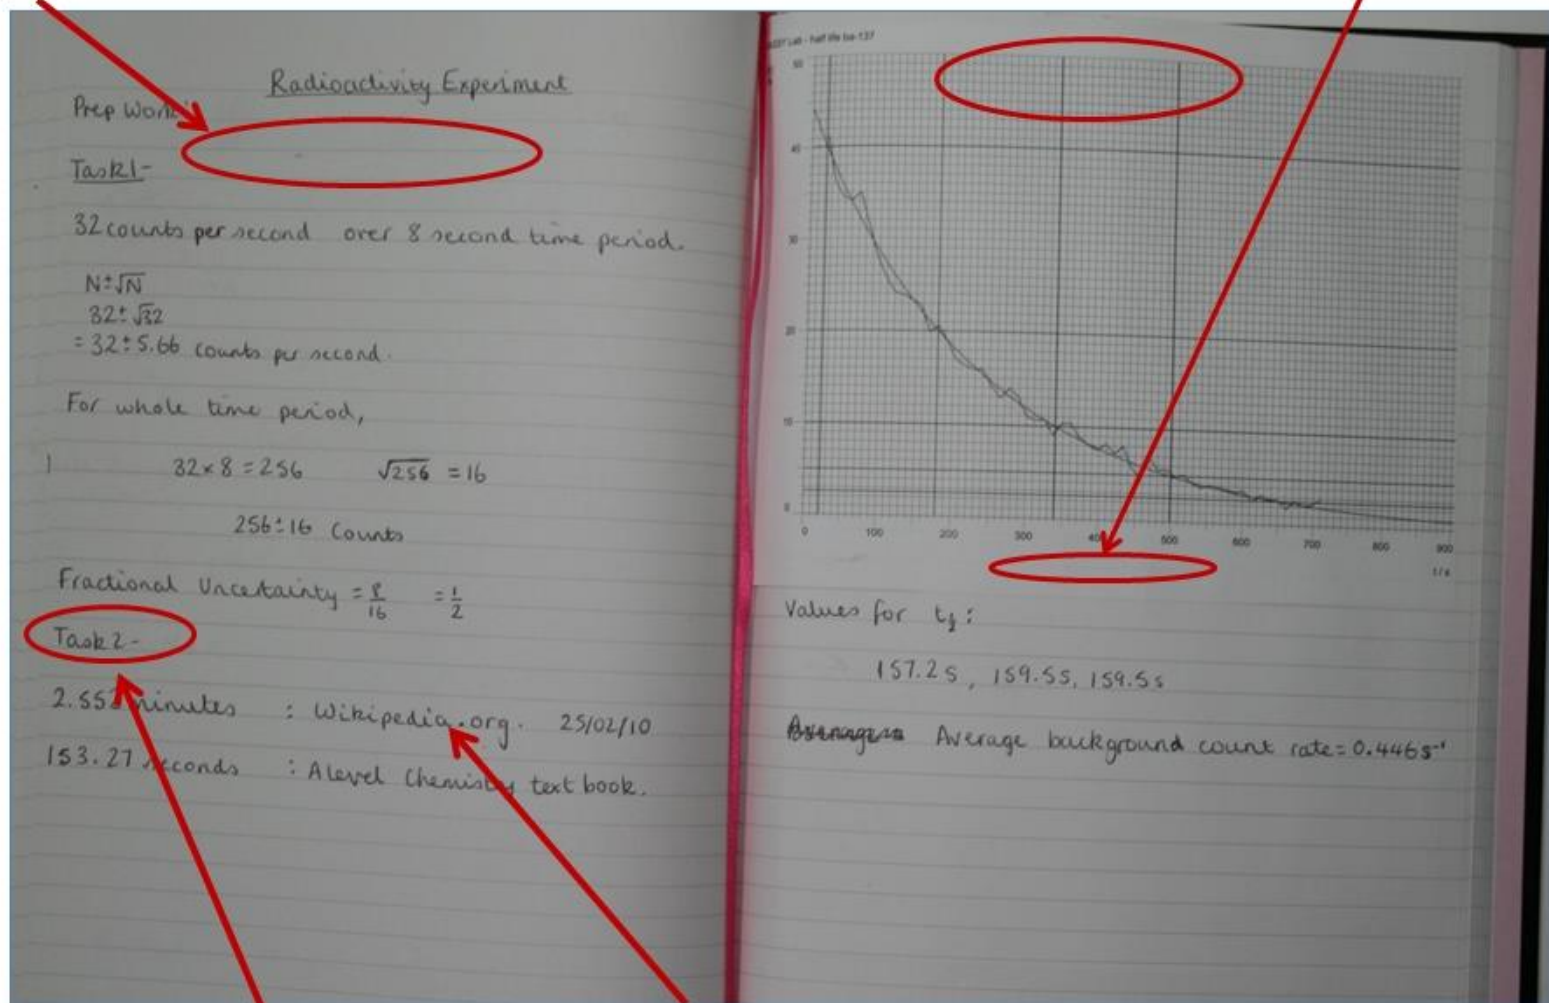 Radioactivity Experiment
Prep Work
Task 1-
32 counts per second over 8 second time period.
N±√N
32±√32
= 32±5.66 counts per second.
For whole time period,
32×8=256 √256 =16
256±16 Counts
Fractional Uncertainty = 8/16 = 1/2
Task 2-
2.552 minutes : Wikipedia.org. 25/02/10
153.27 seconds : A level Chemistry text book.
Lab - half life ba-137
50
40
30
20
10
0
0 100 200 300 400 500 600 700 800 900
t / s
Values for t½:
157.2s, 159.5s, 159.5s
Average background count rate = 0.446s⁻¹